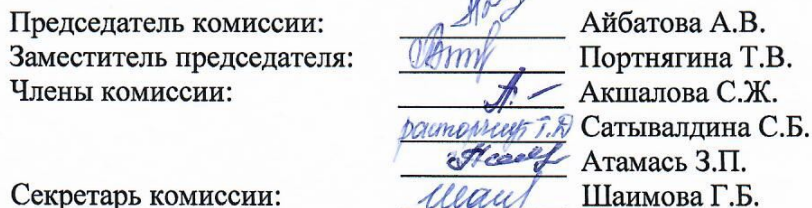 Председатель комиссии: Айбатова А.В.
Заместитель председателя: Портнягина Т.В.
Члены комиссии: Акшалова С.Ж.
расторгнут Т.Д Сатывалдина С.Б.
Атамась З.П.
Секретарь комиссии: Шаимова Г.Б.